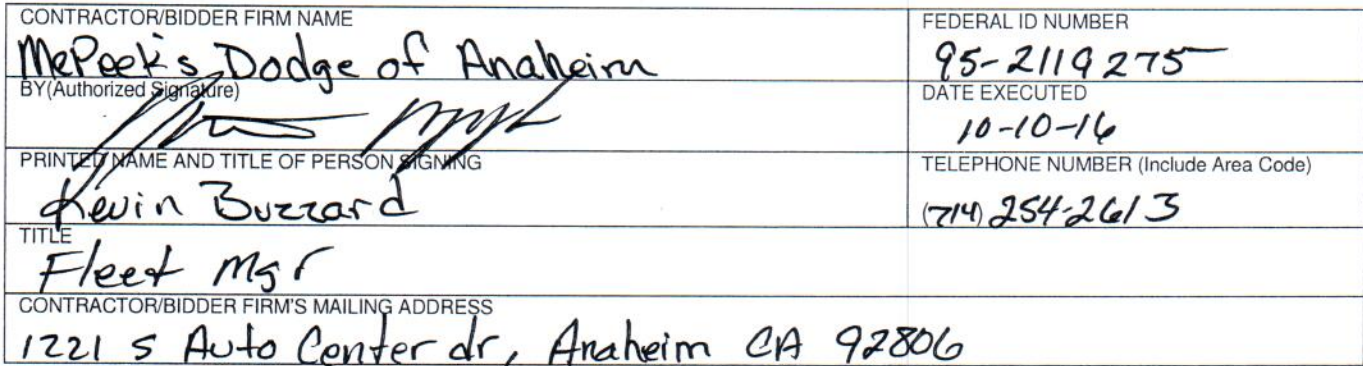 CONTRACTOR/BIDDER FIRM NAME
McPeek's Dodge of Anaheim
FEDERAL ID NUMBER
95-2119275
BY(Authorized Signature)
DATE EXECUTED
10-10-16
PRINTED NAME AND TITLE OF PERSON SIGNING
Kevin Buzzard
TELEPHONE NUMBER (Include Area Code)
(714) 254-2613
TITLE
Fleet Mgr
CONTRACTOR/BIDDER FIRM'S MAILING ADDRESS
1221 S Auto Center dr, Anaheim CA 92806